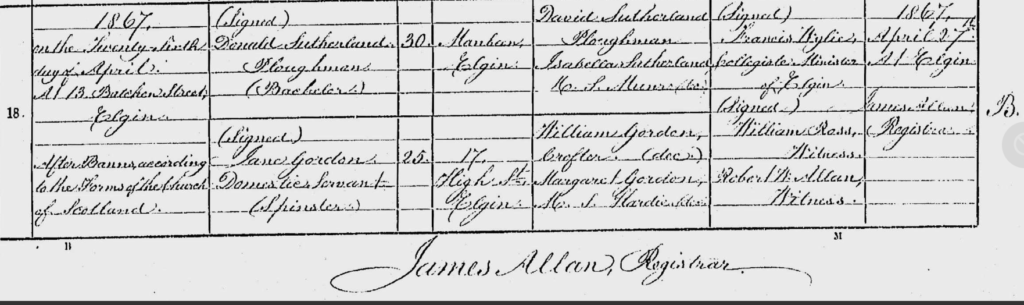 18.
1867.
on the Twenty-sixth
day of April.
At 13. Batchen Street,
Elgin
After Banns, according
to the Forms of the Church
of Scotland.
(Signed)
Donald Sutherland.
Ploughman
(Bachelor)
(Signed)
Jane Gordon
Domestic Servant
(Spinster)
30.
25.
Manbeen
Elgin
17.
High St.
Elgin
David Sutherland
Ploughman
Isabella Sutherland,
M. S. Munro (dec.)
William Gordon,
Crofter (dec.)
Margaret Gordon,
M. S. Hardie (dec.)
(Signed)
Francis Wylie,
Collegiate Minister
of Elgin
(Signed)
William Ross,
Witness.
Robert W. Allan,
Witness.
1867.
April 27th
At Elgin
James Allan
Registrar
B.
James Allan, Registrar.